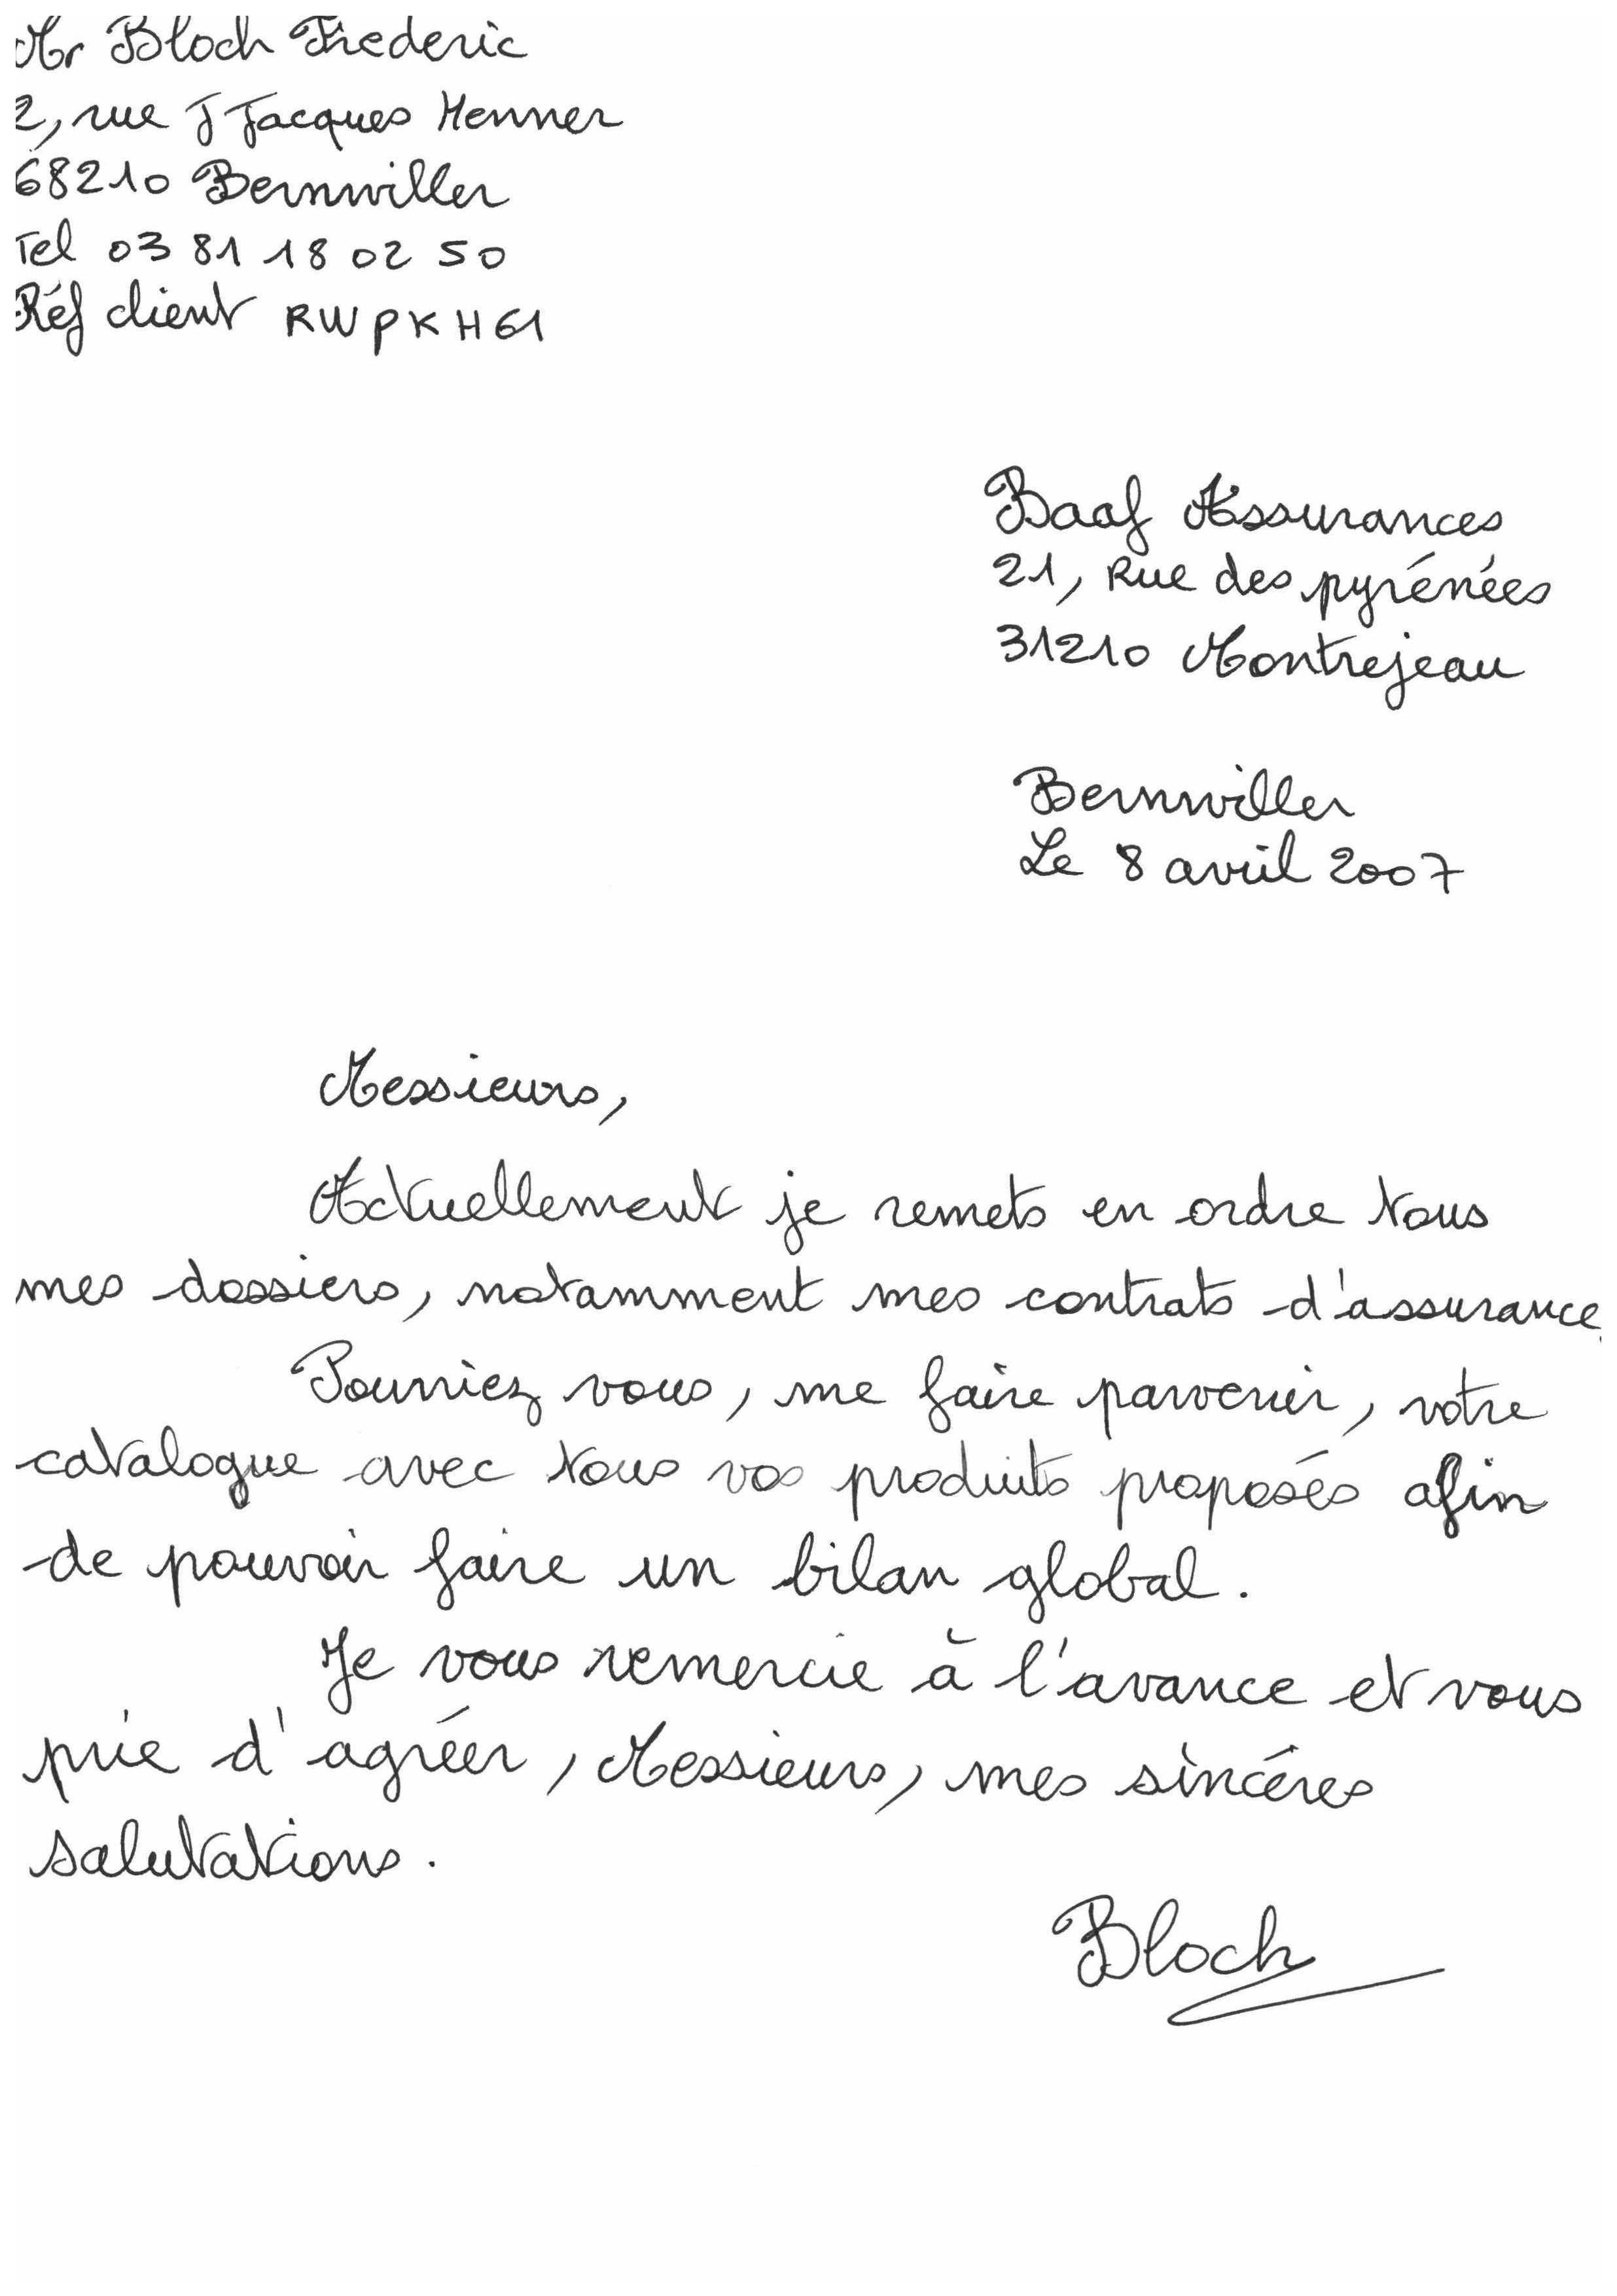 Mr Bloch Frederic
2, rue J Jacques Henner
68210 Bernwiller
Tel 03 81 18 02 50
Réf client RWPKH61
Baaf Assurances
21, Rue des pyrénées
31210 Montrejeau
Bernwiller
Le 8 avril 2007
Messieurs,
Actuellement je remets en ordre tous
mes dossiers, notamment mes contrats d'assurance.
Pourriez vous, me faire parvenir, votre
catalogue avec tous vos produits proposés afin
de pouvoir faire un bilan global.
Je vous remercie à l'avance et vous
prie d'agréer, Messieurs, mes sincéres
salutations.
Bloch